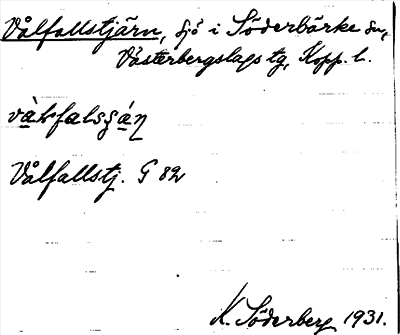 Vålfallstjärn, sjö i Söderbärke sn,
Västerbergslags tg, Kopp. l.
vàkfalsʂáɳ
Vålfallstj. G 82
K. Söderberg 1931.